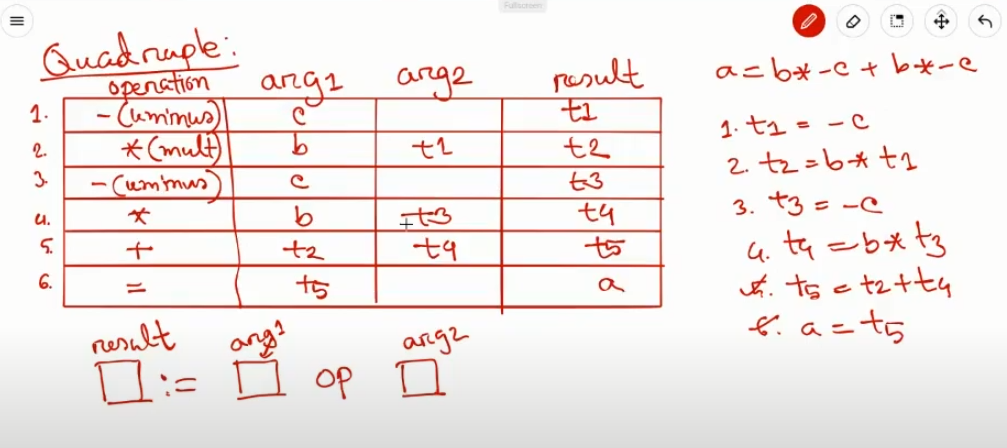 Fullscreen
Quadruple:
operation arg1 arg2 result
1. -(uminus) c t1
2. *(mult) b t1 t2
3. -(uminus) c t3
4. * b t3 t4
5. + t2 t4 t5
6. = t5 a
result arg1 arg2
:= op
a = b*-c + b*-c
1. t1 = -c
2. t2 = b* t1
3. t3 = -c
4. t4 = b* t3
5. t5 = t2+t4
6. a = t5